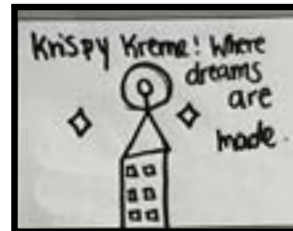 Krispy Kreme! Where
dreams
are
made.